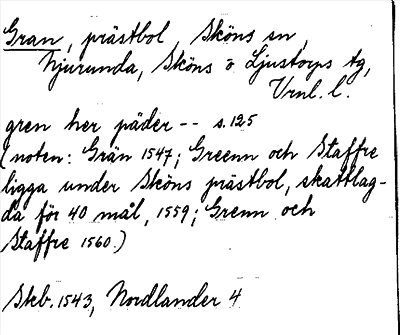 Gran, prästbol, Sköns sn,
Njurunda, Sköns o Ljustorps tg,
Vrnl. l.
gren her päder -- s.125
(noten: Grän 1547; Greenn och Staffre
ligga under Sköns prästbol, skattlag-
da för 40 mål, 1559; Grenn och
Staffre 1560.)
Skb. 1543, Nordlander 4